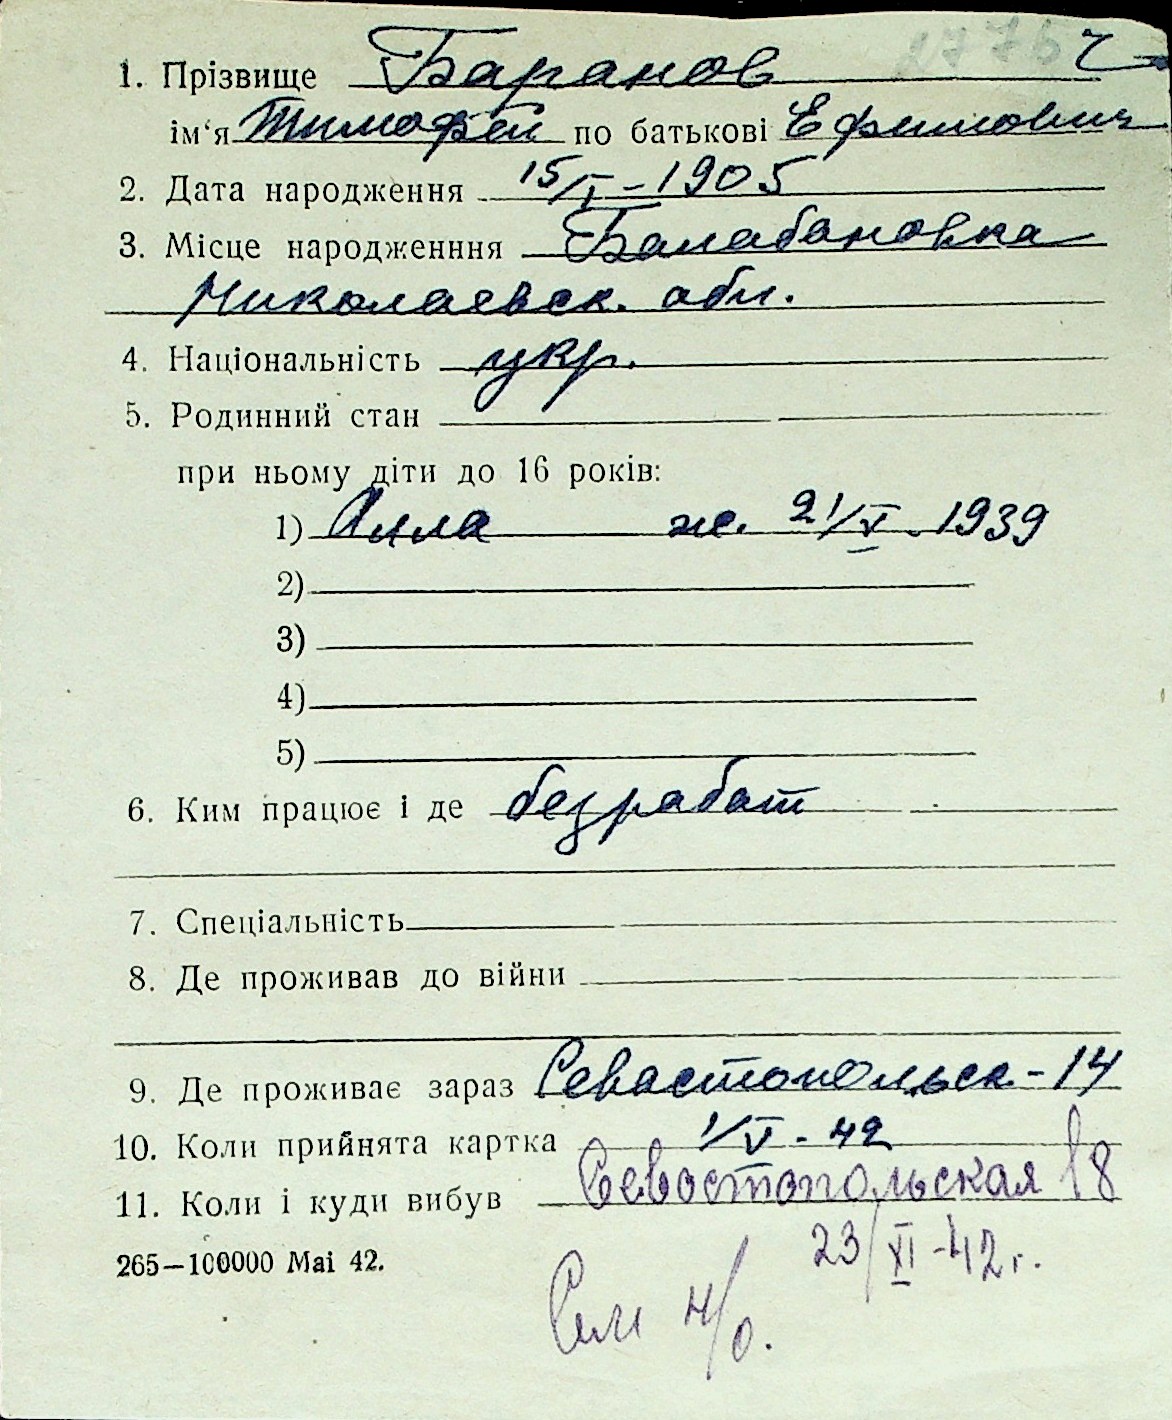 2776 ч
1. Прізвище Баранов
ім'я Тимофей по батькові Ефимович
2. Дата народження 15/I - 1905
3. Місце народженння Балабановка
Николаевск. обл.
4. Національність укр.
5. Родинний стан
при ньому діти до 16 років:
1) Алла ж. 21/V - 1939
2)
3)
4)
5)
6. Ким працює і де безработ
7. Спеціальність
8. Де проживав до війни
9. Де проживає зараз Севастопольск - 14
10. Коли прийнята картка 1/V - 42
11. Коли і куди вибув Севостопольская 18
23/XI - 42 г.
265—100000 Mai 42.
н/о.